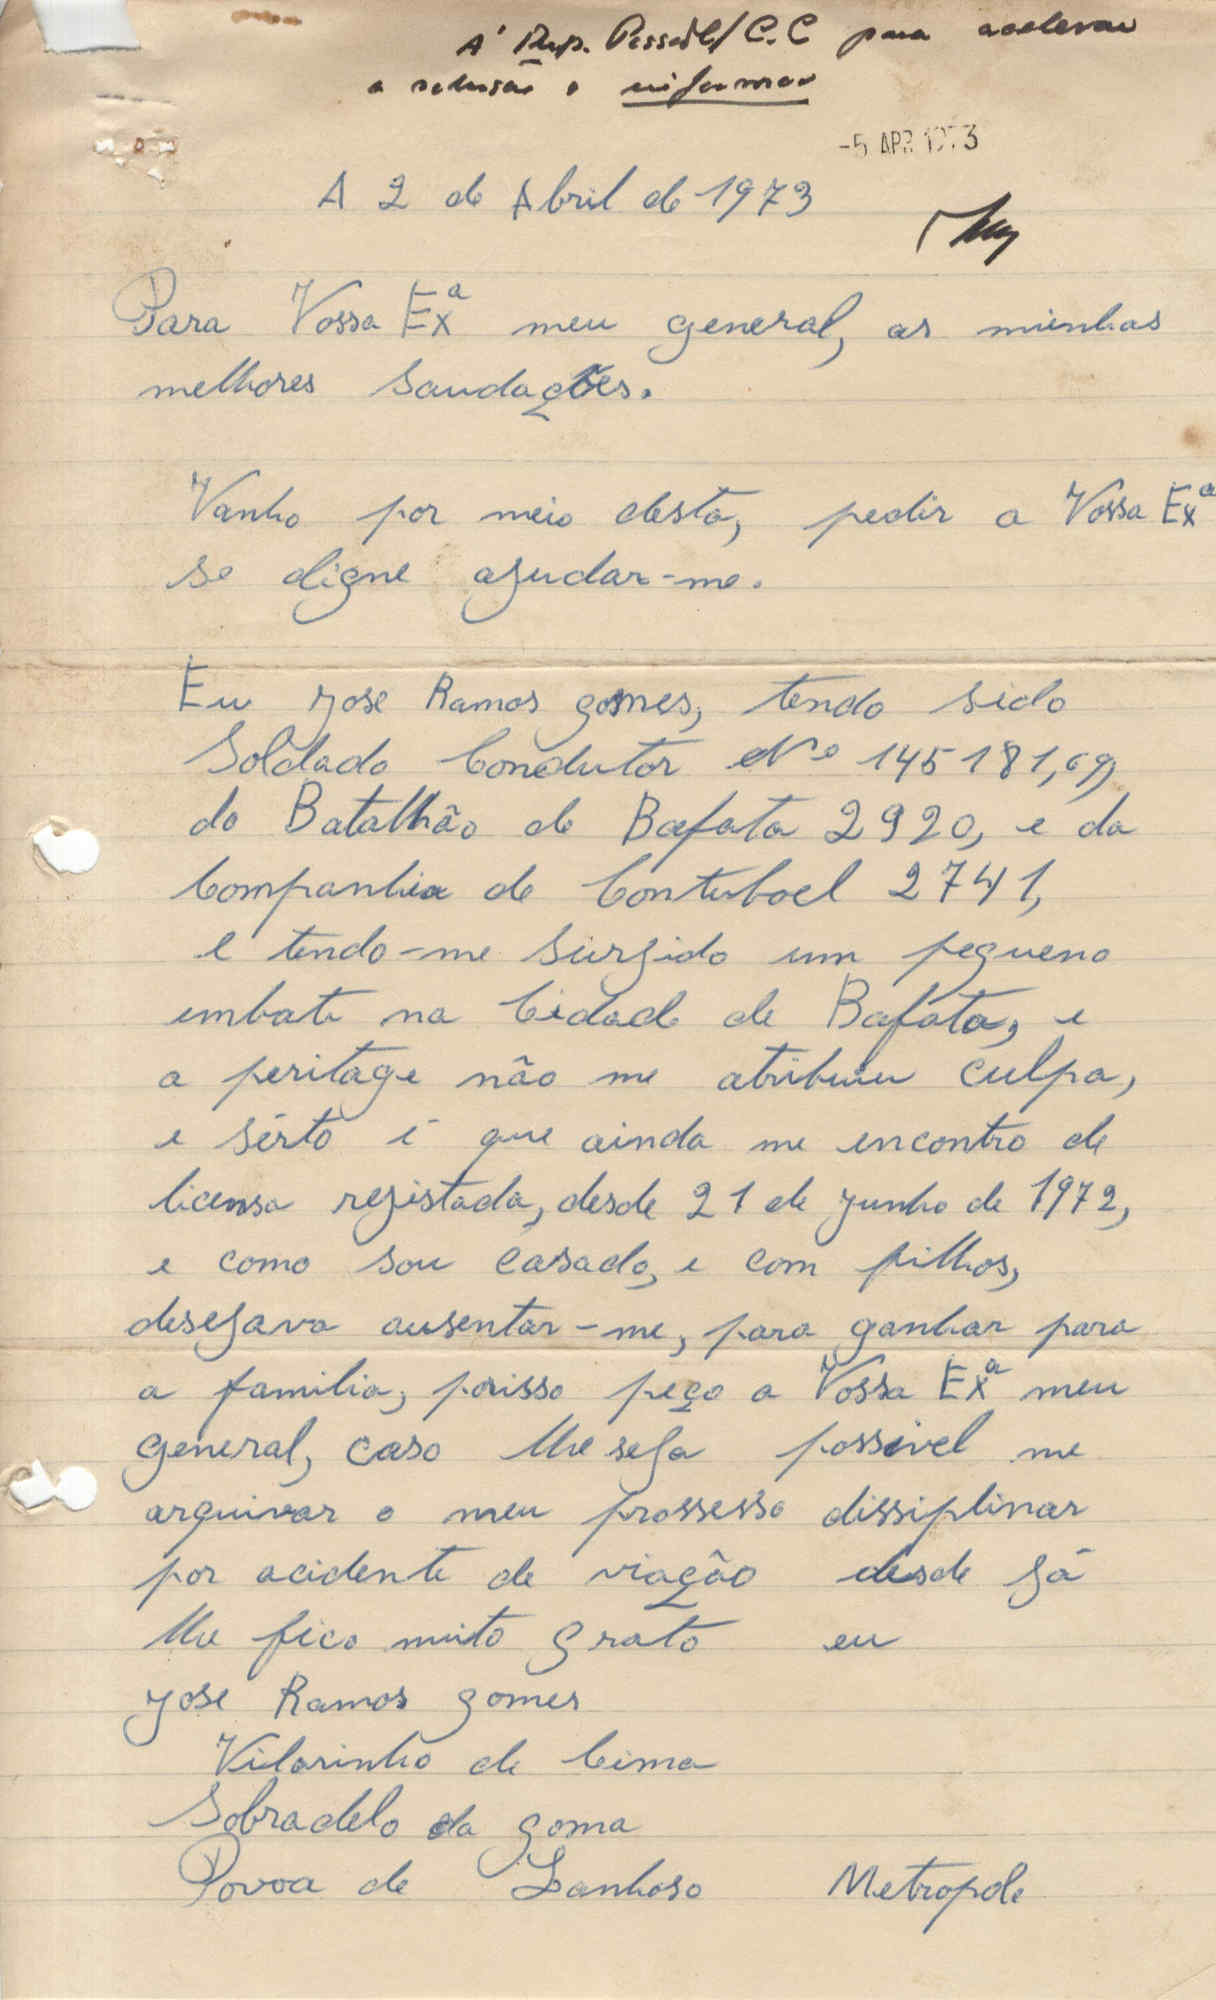 A' Rep. Pessoal/C.C para acelerar
a solução e informar
-5 APR 1973
A 2 de Abril de 1973
Para Vossa Exª meu general, as minhas
melhores Saudações.
Vanho por meio desta, pedir a Vossa Exª
se digne ajudar-me.
Eu Jose Ramos gomes, tendo sido
Soldado Condutor Nº 145181,69,
do Batalhão de Bafata 2920, e da
Companhia de Contuboel 2741,
e tendo-me surgido um pequeno
embate na Cidade de Bafata, e
a peritage não me atribuiu culpa,
e sérto é que ainda me encontro de
licensa registada, desde 21 de Junho de 1972,
e como sou casado, e com filhos,
desejava ausentar-me, para ganhar para
a familia, porisso peço a Vossa Exª meu
general, caso lhe seja possivel me
arquivar o meu prossesso dissiplinar
por acidente de viação desde já
lhe fico muito grato eu
Jose Ramos gomes
Vilarinho de Cima
Sobradelo da goma
Povoa de Lanhoso Metropole